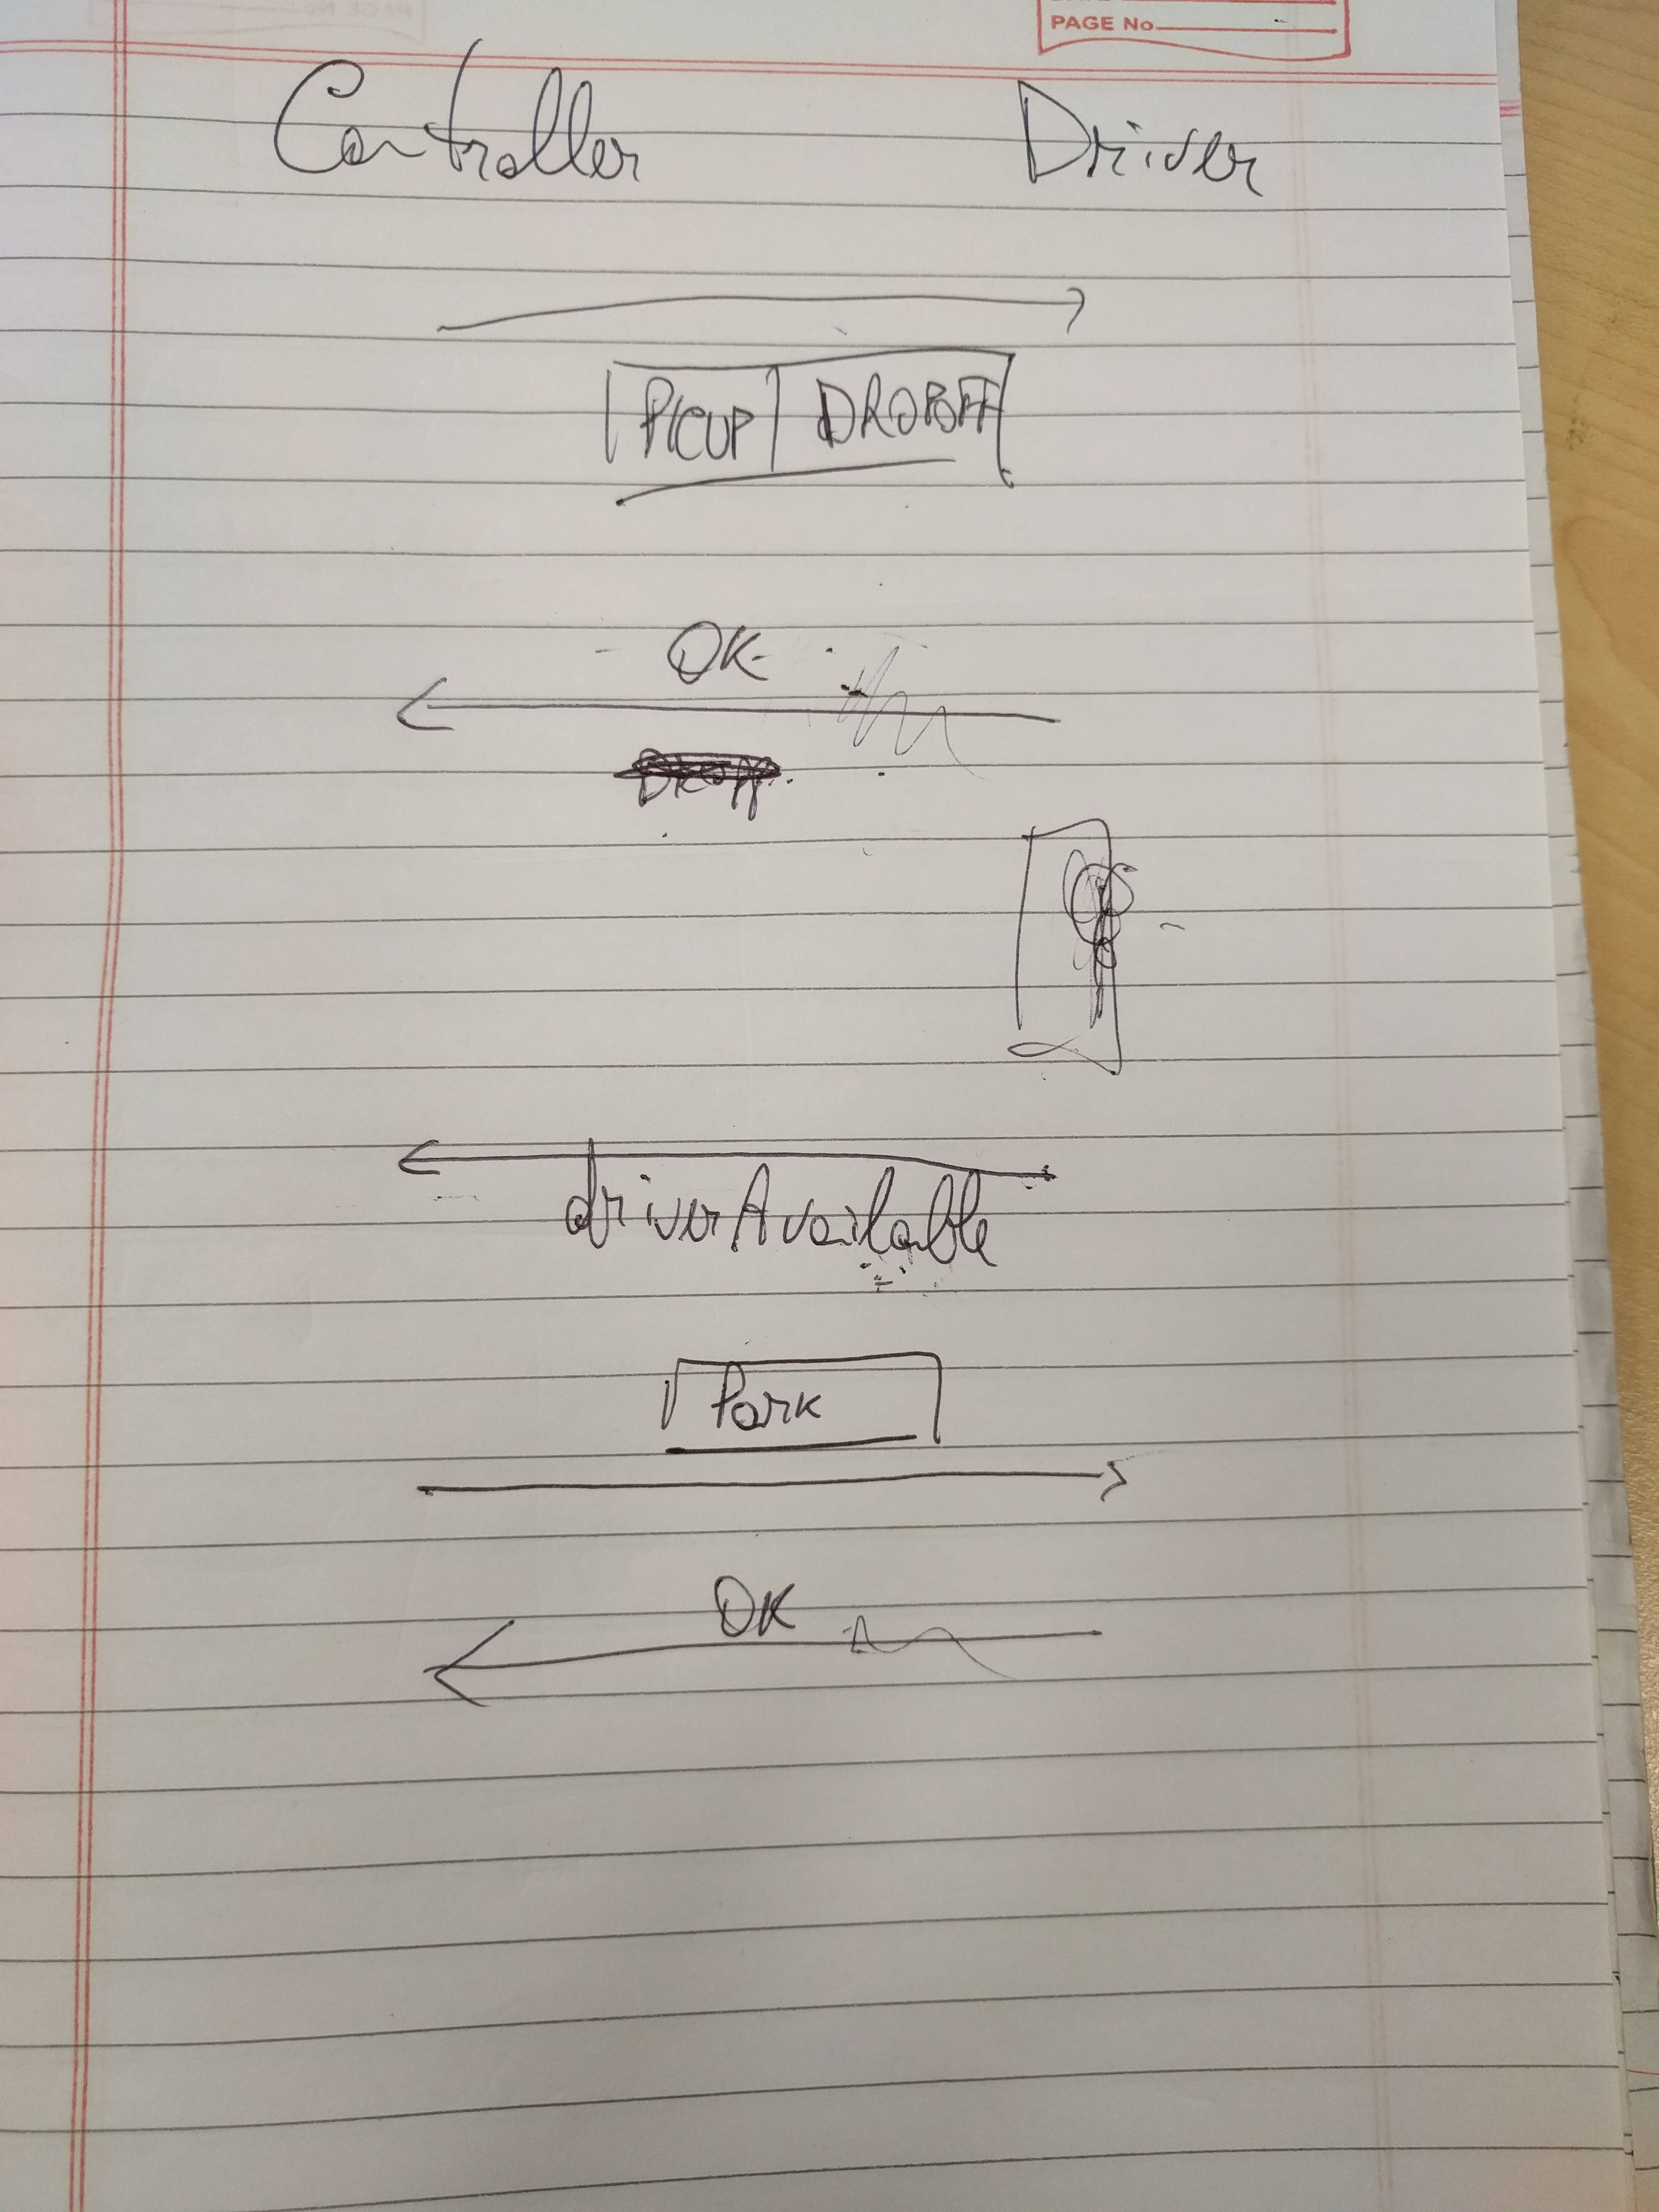 PAGE No
Controller Driver
PICUP DROPOFF
OK
driverAvailable
Park
OK